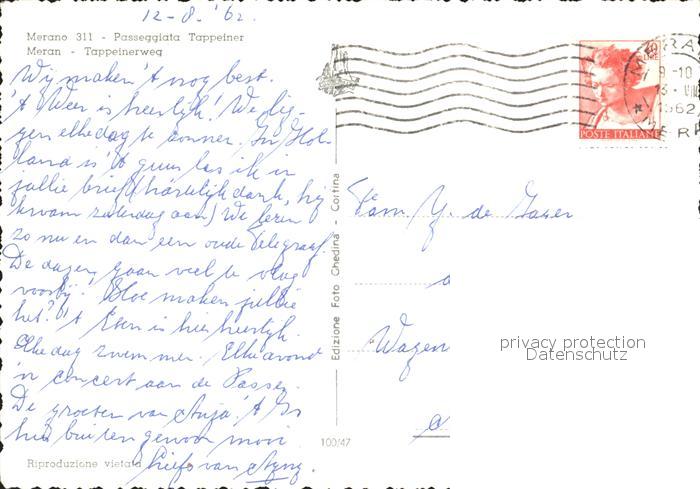 12-8.'62.
Merano 311 - Passeggiata Tappeiner
Meran - Tappeinerweg
Wij maken 't nog best.
't Weer is heerlijk! We lig-
gen elke dag te zonnen. In Hol-
land is 't guur las ik in
jullie brief (hartelijk dank, hij
kwam zaterdag aan) We lezen
zo nu en dan een oude Telegraaf.
De dagen gaan veel te vlug
voorbij! Hoe maken jullie
het? 't Eten is hier heerlijk.
Elke dag zwemmen. Elke avond
'n concert aan de Passer.
De groeten van Anja! 't Is
hier buiten gewoon mooi.
Liefs van
Riproduzione vietata
100/47
Edizione Foto Ghedina - Cortina
POSTE ITALIANE
LIRE
MERA
9-10
1962
MERA
Fam. Y. de
Wagen
privacy protection
Datenschutz